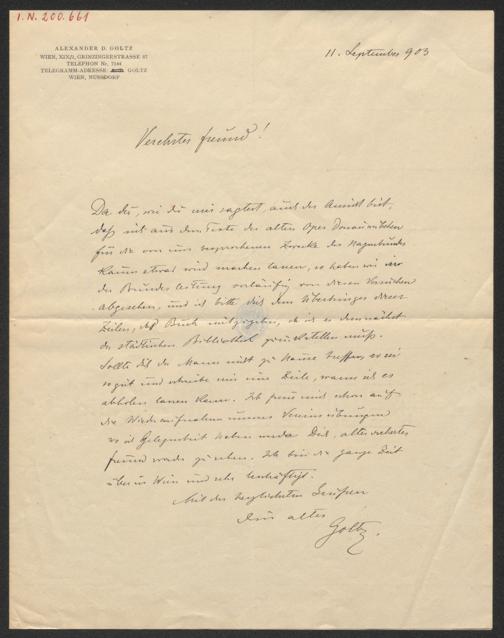 I.N. 200.661
ALEXANDER D. GOLTZ
WIEN, XIX/1, GRINZINGERSTRASSE 87
TELEPHON Nr. 7144
TELEGRAMM-ADRESSE: GOLTZ
WIEN, NUSSDORF
11. September 903
Verehrter Freund!
Da du, wie du mir sagtest, auch der Ansicht bist,
daß sich aus dem Texte der alten Oper Donauweibchen
für die von uns besprochenen Zwecke des Hagenbundes
kaum etwas wird machen lassen, so haben wir in
der Bundesleitung vorläufig von diesen Versuchen
abgesehen, und ich bitte dich dem Überbringer dieser
Zeilen, das Buch mitzugeben, da ich es demnächst
der städtischen Bibliothek zurückstellen muß.
Sollte dich der Mann nicht zu Hause treffen, so sei
so gut und schreibe mir eine Zeile, wann ich es
abholen lassen kann. Ich freue mich schon auf
die Wiederaufnahme unserer Vereinsübungen
wo ich Gelegenheit haben werde Dich, alter verehrter
Freund wieder zu sehen. Ich bin die ganze Zeit
über in Wien und sehr beschäftigt.
Mit den herzlichsten Grüßen
Dein alter
Goltz.